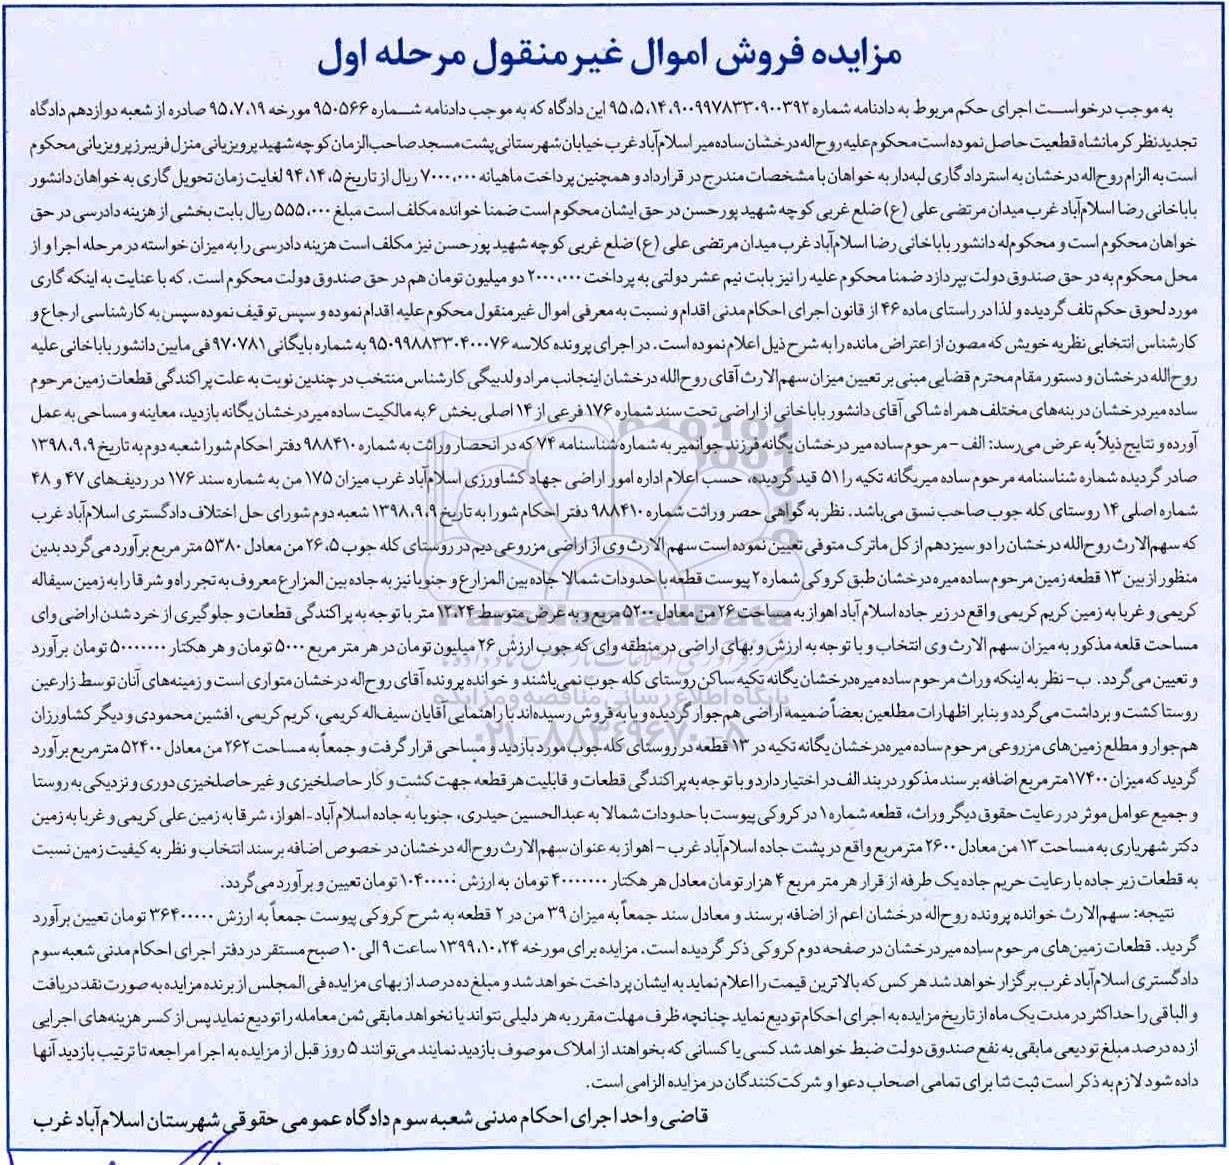 مزایده فروش اموال غیرمنقول مرحله اول
به موجب درخواست اجرای حکم مربوط به دادنامه شماره ۹۰۰۹۹۷۸۳۳۰۹۰۰۳۹۲ـ۹۵،۵،۱۴ این دادگاه که به موجب دادنامه شماره ۹۵۰۵۶۶ مورخه ۹۵،۷،۱۹ صادره از شعبه دوازدهم دادگاه
تجدیدنظر کرمانشاه قطعیت حاصل نموده است محکوم علیه روح اله درخشان ساده میر اسلام آباد غرب خیابان شهرستانی پشت مسجد صاحب الزمان کوچه شهید پرویزیانی منزل فریبرز پرویزیانی محکوم
است به الزام روح اله درخشان به استرداد گاری لبه دار به خواهان با مشخصات مندرج در قرارداد و همچنین پرداخت ماهیانه ۷۰۰۰،۰۰۰ ریال از تاریخ ۹۴،۱۴،۵ لغایت زمان تحویل گاری به خواهان دانشور
باباخانی رضا اسلام آباد غرب میدان مرتضی علی (ع) ضلع غربی کوچه شهید پورحسن در حق ایشان محکوم است ضمنا خوانده مکلف است مبلغ ۵۵۵،۰۰۰ ریال بابت بخشی از هزینه دادرسی در حق
خواهان محکوم است و محکوم له دانشور باباخانی رضا اسلام آباد غرب میدان مرتضی علی (ع) ضلع غربی کوچه شهید پورحسن نیز مکلف است هزینه دادرسی را به میزان خواسته در مرحله اجرا و از
محل محکوم به در حق صندوق دولت بپردازد ضمنا محکوم علیه را نیز بابت نیم عشر دولتی به پرداخت ۲۰۰۰،۰۰۰ دو میلیون تومان هم در حق صندوق دولت محکوم است. که با عنایت به اینکه گاری
مورد لحوق حکم تلف گردیده و لذا در راستای ماده ۴۶ از قانون اجرای احکام مدنی اقدام و نسبت به معرفی اموال غیرمنقول محکوم علیه اقدام نموده و سپس توقیف نموده سپس به کارشناسی ارجاع و
کارشناس انتخابی نظریه خویش که مصون از اعتراض مانده را به شرح ذیل اعلام نموده است. در اجرای پرونده کلاسه ۹۵۰۹۹۸۸۳۳۰۴۰۰۰۷۶ به شماره بایگانی ۹۷۰۷۸۱ فی مابین دانشور باباخانی علیه
روح الله درخشان و دستور مقام محترم قضایی مبنی بر تعیین میزان سهم الارث آقای روح الله درخشان اینجانب مراد ولدبیگی کارشناس منتخب در چندین نوبت به علت پراکندگی قطعات زمین مرحوم
ساده میر درخشان در بنه های مختلف همراه شاکی آقای دانشور باباخانی از اراضی تحت سند شماره ۱۷۶ فرعی از ۱۴ اصلی بخش ۶ به مالکیت ساده میر درخشان یگانه بازدید، معاینه و مساحی به عمل
آورده و نتایج ذیلاً به عرض می رسد: الف – مرحوم ساده میر درخشان یگانه فرزند جوانمیر به شماره شناسنامه ۷۴ که در انحصار وراثت به شماره ۹۸۸۴۱۰ دفتر احکام شورا شعبه دوم به تاریخ ۱۳۹۸،۹،۹
صادر گردیده شماره شناسنامه مرحوم ساده میر یگانه تکیه را ۵۱ قید گردیده، حسب اعلام اداره امور اراضی جهاد کشاورزی اسلام آباد غرب میزان ۱۷۵ من به شماره سند ۱۷۶ در ردیف های ۴۷ و ۴۸
شماره اصلی ۱۴ روستای کله جوب صاحب نسق می باشد. نظر به گواهی حصر وراثت شماره ۹۸۸۴۱۰ دفتر احکام شورا به تاریخ ۱۳۹۸،۹،۹ شعبه دوم شورای حل اختلاف دادگستری اسلام آباد غرب
که سهم الارث روح الله درخشان را دو سیزدهم از کل ماترک متوفی تعیین نموده است سهم الارث وی از اراضی مزروعی دیم در روستای کله جوب ۲۶،۵ من معادل ۵۳۸۰ متر مربع برآورد می گردد بدین
منظور از بین ۱۳ قطعه زمین مرحوم ساده میره درخشان طبق کروکی شماره ۲ پیوست قطعه با حدودات شمالا جاده بین المزارع و جنوبا نیز به جاده بین المزارع معروف به تجر راه و شرقا را به زمین سیفاله
کریمی و غربا به زمین کریم کریمی واقع در زیر جاده اسلام آباد اهواز به مساحت ۲۶ من معادل ۵۲۰۰ مربع و به عرض متوسط ۱۲،۲۴ متر با توجه به پراکندگی قطعات و جلوگیری از خرد شدن اراضی وای
مساحت قلعه مذکور به میزان سهم الارث وی انتخاب و با توجه به ارزش و بهای اراضی در منطقه وای که جوب ارزش ۲۶ میلیون تومان در هر متر مربع ۵۰۰۰ تومان و هر هکتار ۵۰۰۰۰۰۰۰ تومان برآورد
و تعیین می گردد. ب– نظر به اینکه وراث مرحوم ساده میره درخشان یگانه تکیه ساکن روستای کله جوب نمی باشند و خوانده پرونده آقای روح اله درخشان متواری است و زمینه های آنان توسط زارعین
روستا کشت و برداشت می گردد و بنابر اظهارات مطلعین بعضاً ضمیمه اراضی هم جوار گردیده و یا به فروش رسیده اند با راهنمایی آقایان سیف اله کریمی، کریم کریمی، افشین محمودی و دیگر کشاورزان
هم جوار و مطلع زمین های مزروعی مرحوم ساده میره درخشان یگانه تکیه در ۱۳ قطعه در روستای کله جوب مورد بازدید و مساحی قرار گرفت و جمعاً به مساحت ۲۶۲ من معادل ۵۲۴۰۰ متر مربع برآورد
گردید که میزان ۱۷۴۰۰ متر مربع اضافه بر سند مذکور در بند الف در اختیار دارد و با توجه به پراکندگی قطعات و قابلیت هر قطعه جهت کشت و کار حاصلخیزی و غیر حاصلخیزی دوری و نزدیکی به روستا
و جمیع عوامل موثر در رعایت حقوق دیگر وراث، قطعه شماره ۱ در کروکی پیوست با حدودات شمالا به عبدالحسین حیدری، جنوبا به جاده اسلام آباد-اهواز، شرقا به زمین علی کریمی و غربا به زمین
دکتر شهریاری به مساحت ۱۳ من معادل ۲۶۰۰ متر مربع واقع در پشت جاده اسلام آباد غرب – اهواز به عنوان سهم الارث روح اله درخشان در خصوص اضافه بر سند انتخاب و نظر به کیفیت زمین نسبت
به قطعات زیر جاده با رعایت حریم جاده یک طرفه از قرار هر متر مربع ۴ هزار تومان معادل هر هکتار ۴۰۰۰۰۰۰۰ تومان به ارزش ۱۰۴۰۰۰۰۰ تومان تعیین و برآورد می گردد.
نتیجه: سهم الارث خوانده پرونده روح اله درخشان اعم از اضافه بر سند و معادل سند جمعاً به میزان ۳۹ من در ۲ قطعه به شرح کروکی پیوست جمعاً به ارزش ۳۶۴۰۰۰۰۰ تومان تعیین برآورد
گردید. قطعات زمین های مرحوم ساده میر درخشان در صفحه دوم کروکی ذکر گردیده است. مزایده برای مورخه ۱۳۹۹،۱۰،۲۴ ساعت ۹ الی ۱۰ صبح مستقر در دفتر اجرای احکام مدنی شعبه سوم
دادگستری اسلام آباد غرب برگزار خواهد شد هر کس که بالاترین قیمت را اعلام نماید به ایشان پرداخت خواهد شد و مبلغ ده درصد از بهای مزایده فی المجلس از برنده مزایده به صورت نقد دریافت
و الباقی را حداکثر در مدت یک ماه از تاریخ مزایده به اجرای احکام تودیع نماید چنانچه ظرف مهلت مقرر به هر دلیلی نتواند یا نخواهد مابقی ثمن معامله را تودیع نماید پس از کسر هزینه های اجرایی
از ده درصد مبلغ تودیعی مابقی به نفع صندوق دولت ضبط خواهد شد کسی یا کسانی که بخواهند از املاک موصوف بازدید نمایند می توانند ۵ روز قبل از مزایده به اجرا مراجعه تا ترتیب بازدید آنها
داده شود لازم به ذکر است ثبت شنا برای تمامی اصحاب دعوا و شرکت کنندگان در مزایده الزامی است.
قاضی واحد اجرای احکام مدنی شعبه سوم دادگاه عمومی حقوقی شهرستان اسلام آباد غرب